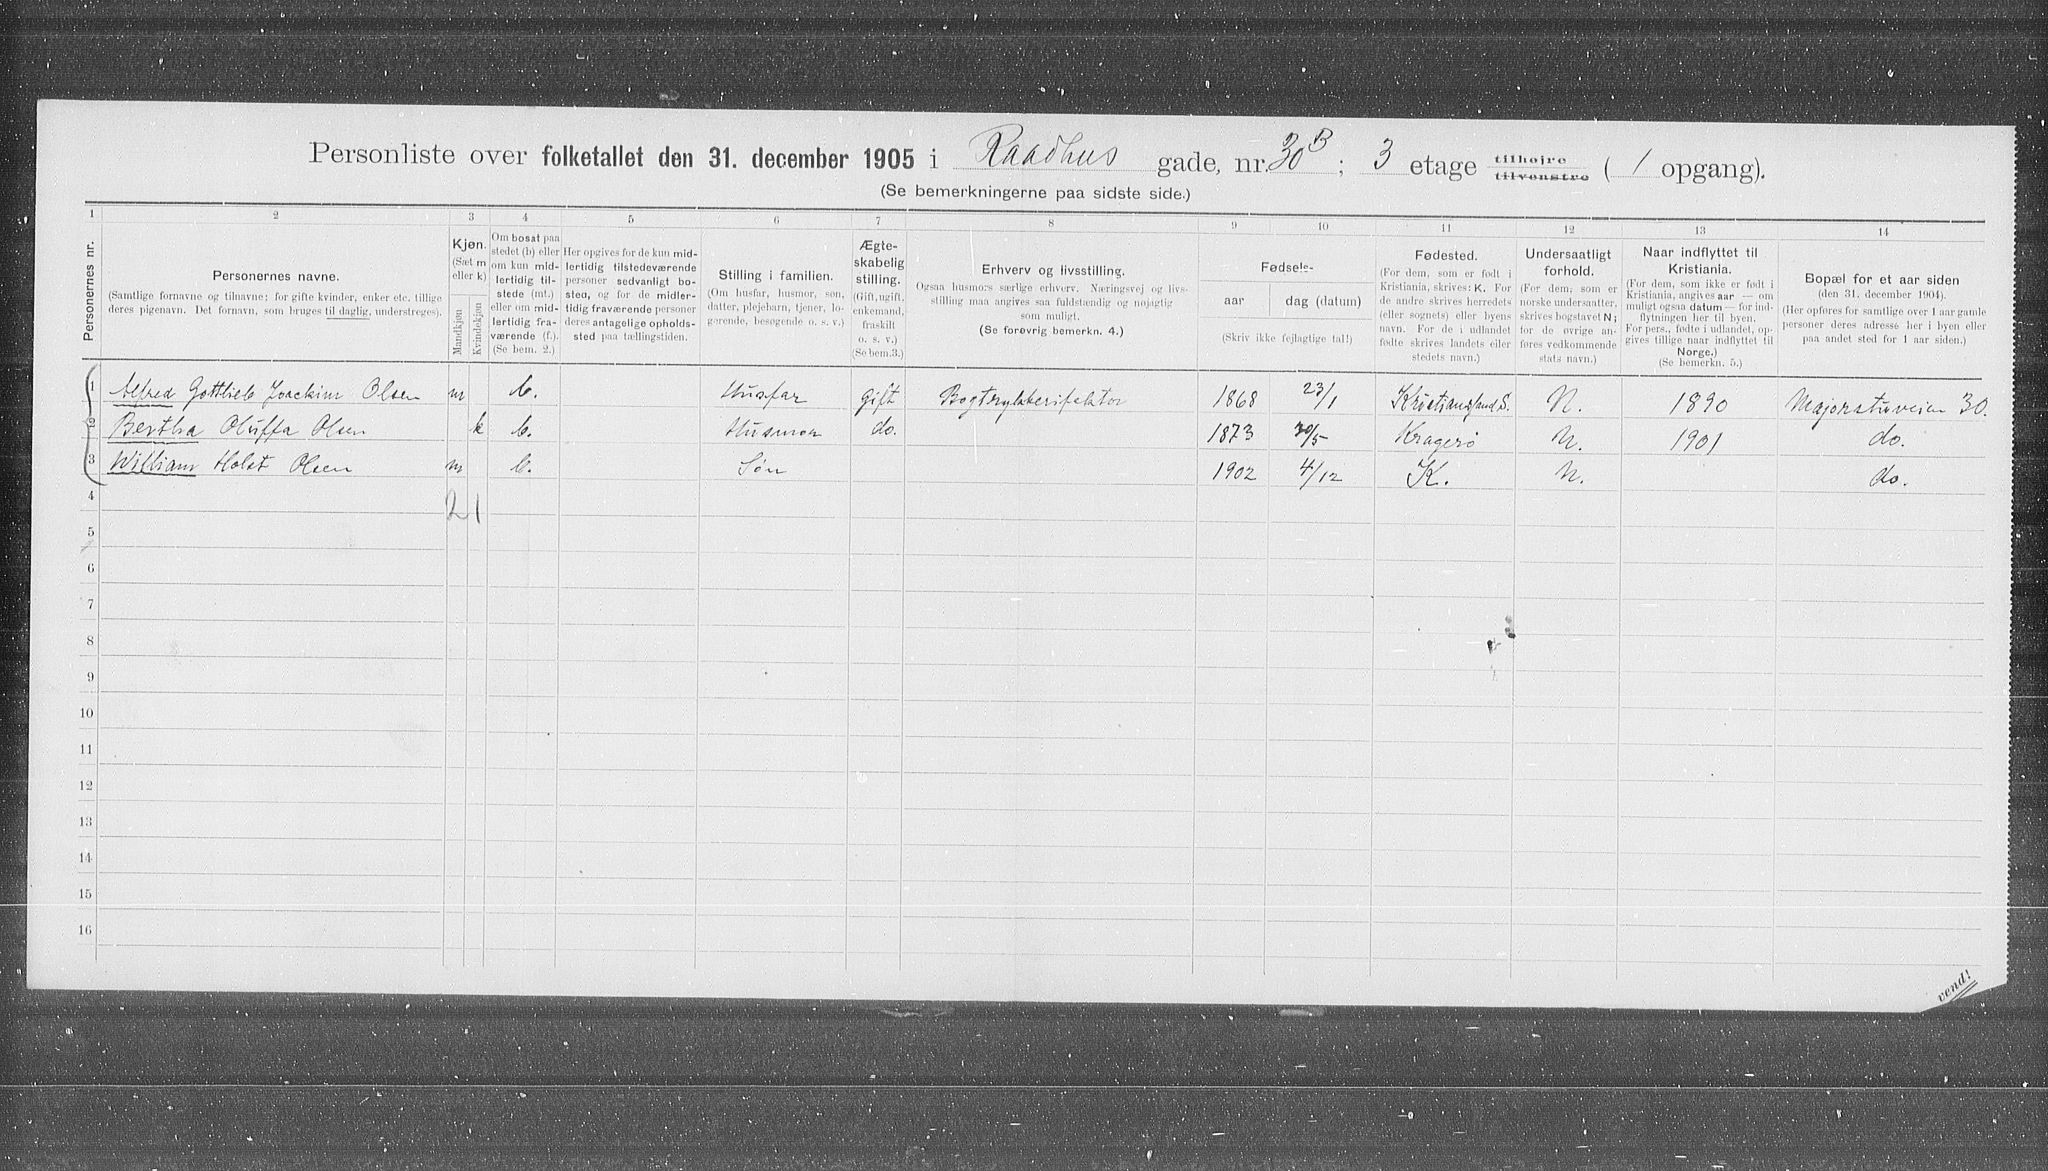 Personliste over folketallet den 31. december 1905 i Raadhus gade, nr. 30 B ; 3 etage tilhøjre tilvenstre ( 1 opgang).
(Se bemerkningerne paa sidste side.)
1 2 3 4 5 6 7 8 9 10 11 12 13 14
Personernes nr.
Personernes navne.
(Samtlige fornavne og tilnavne; for gifte kvinder, enker etc. tillige
deres pigenavn. Det fornavn, som bruges til daglig, understreges).
Kjøn.
(Sæt m
eller k)
Mandkjøn
Kvindekjøn
Om bosat paa
stedet (b) eller
om kun mid-
lertidig til-
stede (mt.)
eller om mid-
lertidig fra-
værende (f.).
(Se bem. 2.)
Her opgives for de kun mid-
lertidig tilstedeværende
personer sedvanligt bo-
sted, og for de midler-
tidig fraværende personer
deres antagelige opholds-
sted paa tællingstiden.
Stilling i familien.
(Om husfar, husmor, søn,
datter, plejebarn, tjener, lo-
gerende, besøgende o. s. v.)
Ægte-
skabelig
stilling.
(Gift, ugift,
enkemand,
fraskilt
o. s. v.)
(Se bem.3.)
Erhverv og livsstilling.
Ogsaa husmors særlige erhverv. Næringsvej og livs-
stilling maa angives saa fuldstændig og nøjagtig
som muligt.
(Se forøvrig bemerkn. 4.)
Fødsels-
aar dag (datum)
(Skriv ikke fejlagtige tal!)
Fødested.
(For dem, som er født i
Kristiania, skrives: K. For
de andre skrives herredets
(eller sognets) eller byens
navn. For de i udlandet
fødte skrives landets eller
stedets navn.)
Undersaatligt
forhold.
(For dem, som er
norske undersaatter,
skrives bogstavet N;
for de øvrige an-
føres vedkommende
stats navn.)
Naar indflyttet til
Kristiania.
(For dem, som ikke er født i
Kristiania, angives aar — om
muligt ogsaa datum — for ind-
flytningen her til byen.
For pers., fødte i udlandet, op-
gives tillige naar indflyttet til
Norge.)
(Se bemerkn. 5.)
Bopæl for et aar siden
(den 31. december 1904).
(Her opføres for samtlige over 1 aar gamle
personer deres adresse her i byen eller
paa andet sted for 1 aar siden.)
1 Alfred Gottlieb Joachim Olsen m b. Husfar gift Bogtrykkerifaktor 1868 23/1 Kristianssand S. N. 1890 Majorstuveien 30.
2 Bertha Oluffa Olsen k b. Husmor do. 1873 30/5 Kragerø N. 1901 do.
3 William Holst Olsen m b. Søn 1902 4/12 K. N. do.
4 2 1
5
6
7
8
9
10
11
12
13
14
15
16
vend!